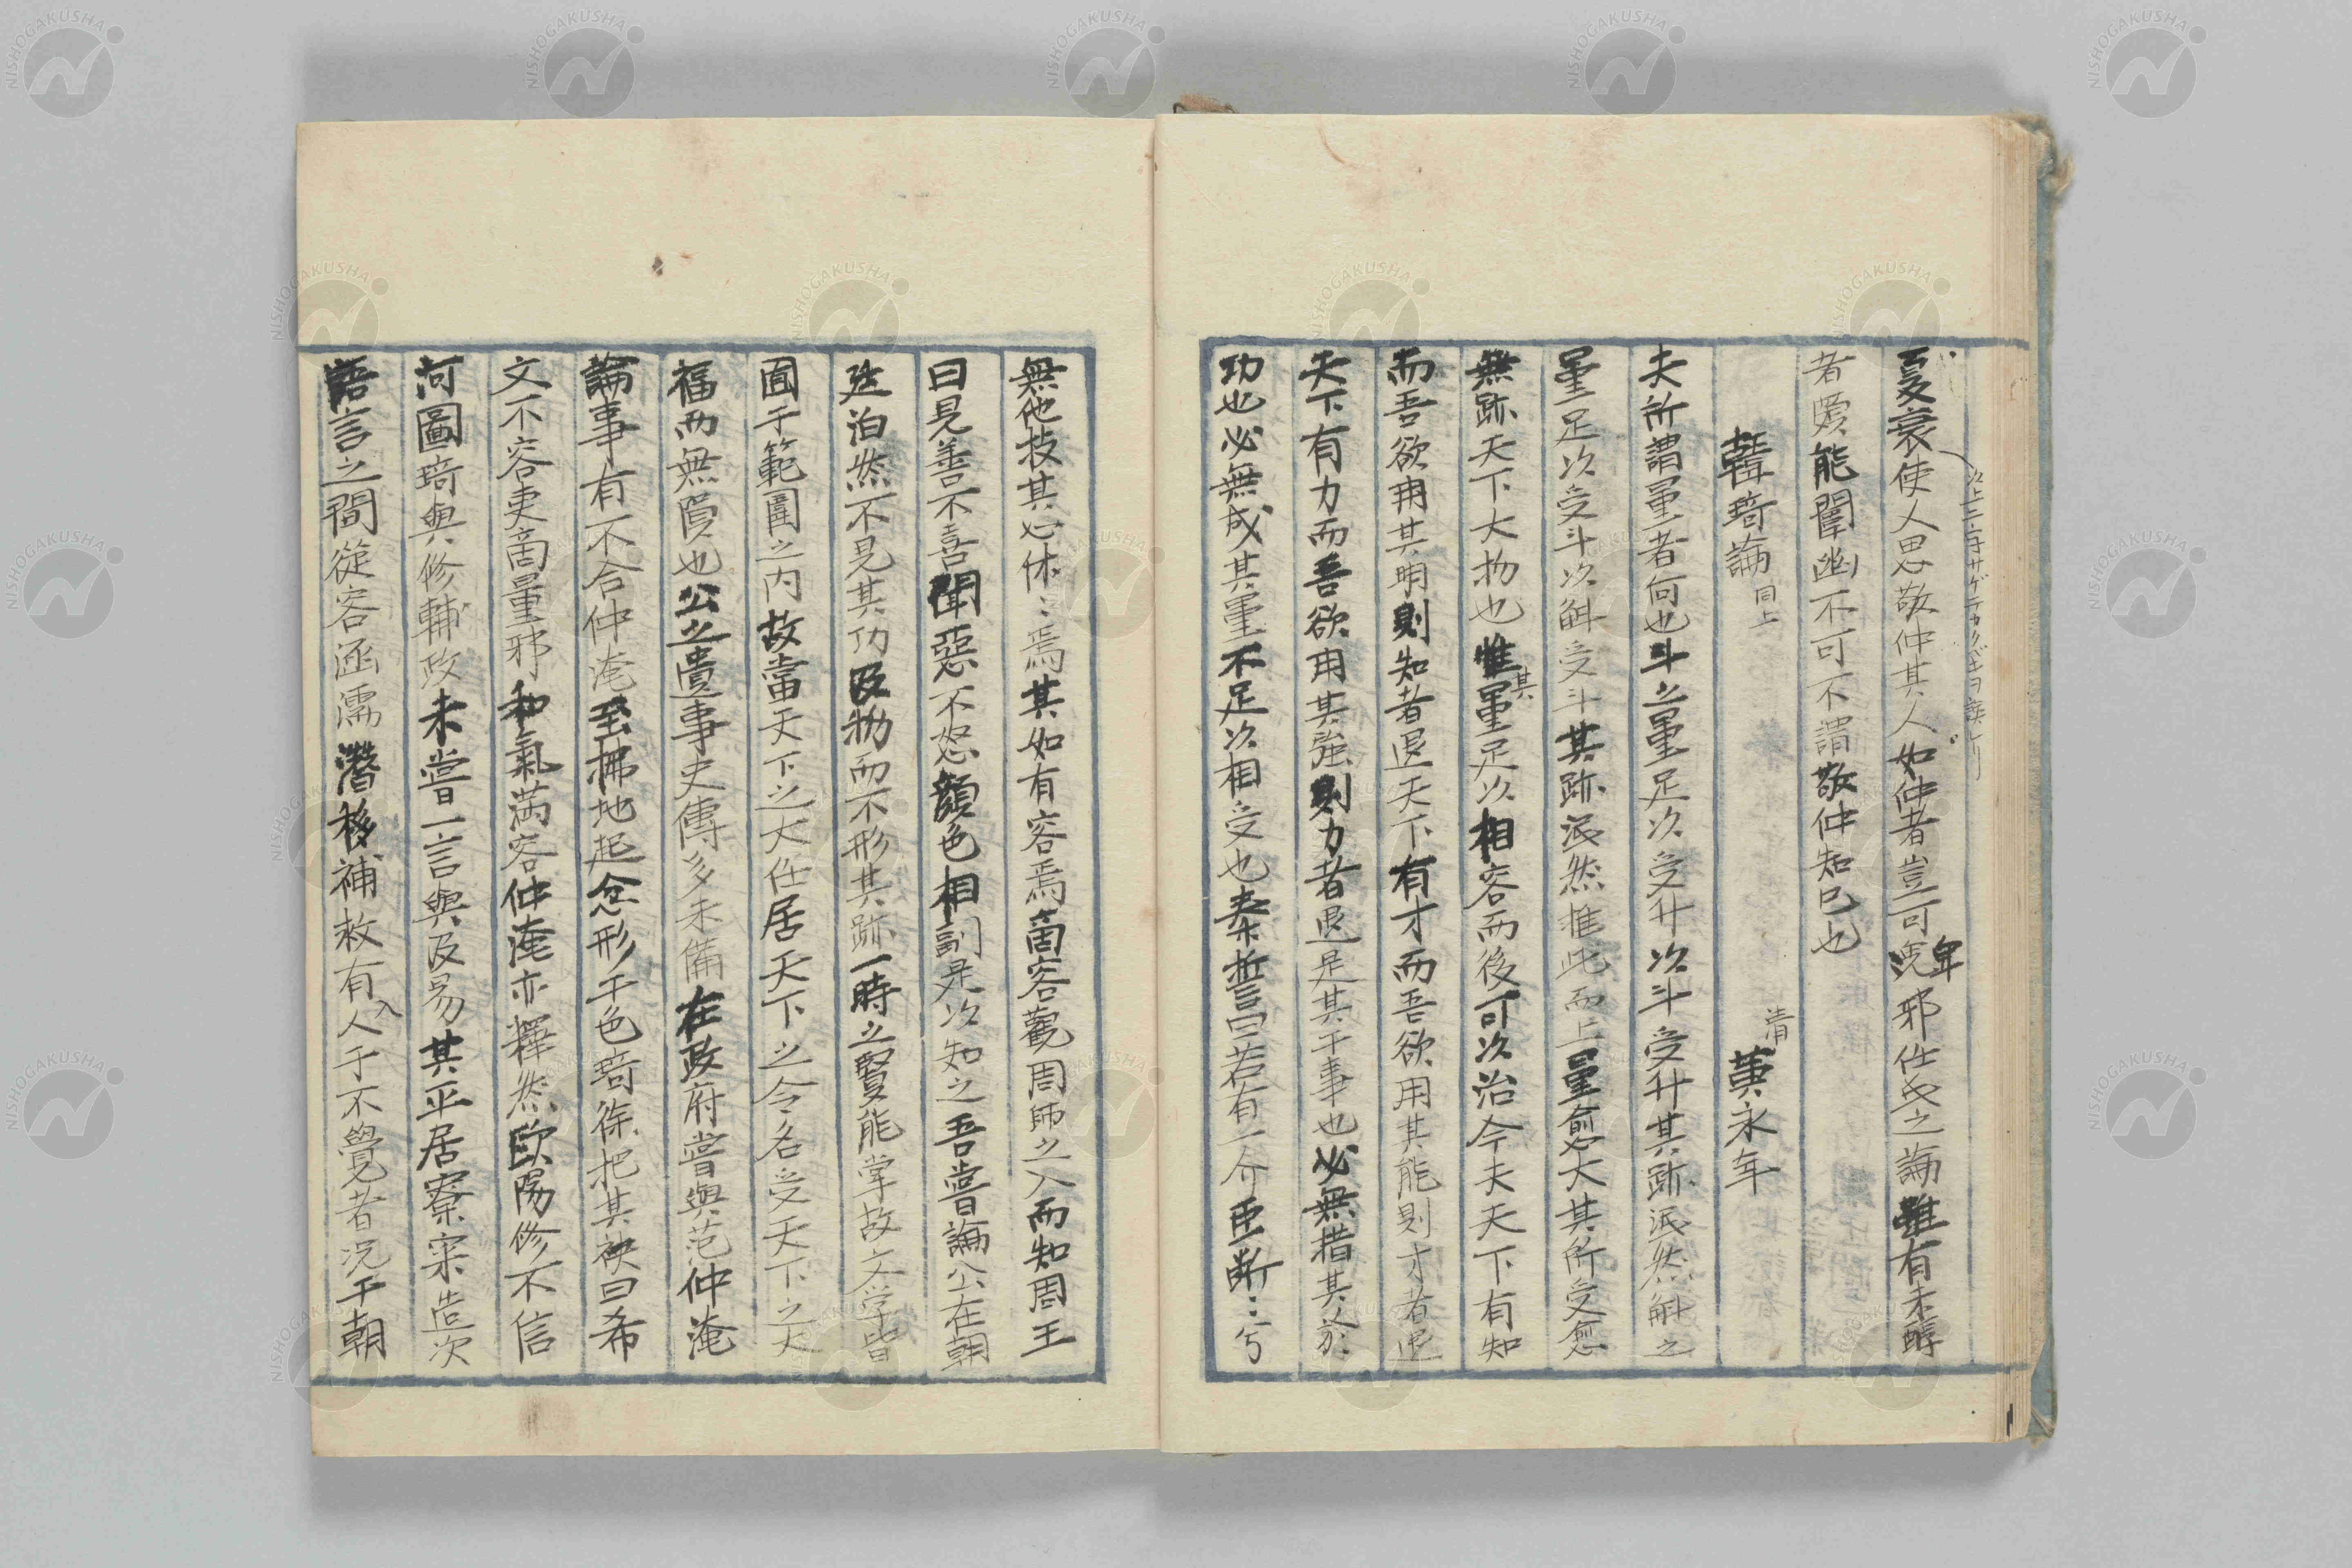 夏衰使人思敬仲其人如仲者豈可卑邪任氏之論雖有未醇
者贤能闡幽不可不謂敬仲知己也
韓琦論 同上 清 黄永年
夫所謂量者何也斗之量足以受升以斗受升其跡泯然斛之
量足以受斗以斛受斗其跡泯然推此而上量愈大其所受愈
無跡天下大物也惟其量足以相容而後可以治今夫天下有知
而吾欲用其明則知者退天下有才而吾欲用其能則才者退
天下有力而吾欲用其強則力者退是其于事也必無措其於
功也必無成其量不足以相受也秦誓曰若有一介臣斷〻兮
無他技其心休〻焉其如有容焉商容觀周師之入而知周王
曰見善不喜聞惡不怒顏色相副是以知之吾嘗論公在朝
廷泊然不見其功及物而不形其跡一時之賢能掌故文学皆
囿于範圍之内故當天下之大任居天下之令名受天下之大
福而無隕也公之遺事史傳多未備在政府嘗與范仲淹
論事有不合仲淹至拂地起忿形于色琦徐把其袂曰希
文不容吏商量邪和氣滿容仲淹亦釋然欧陽修不信
河圖琦與修輔政未嘗一言與及易其平居寮寀造次
語言之間從容涵濡潛移補救有入人于不覺者况于朝